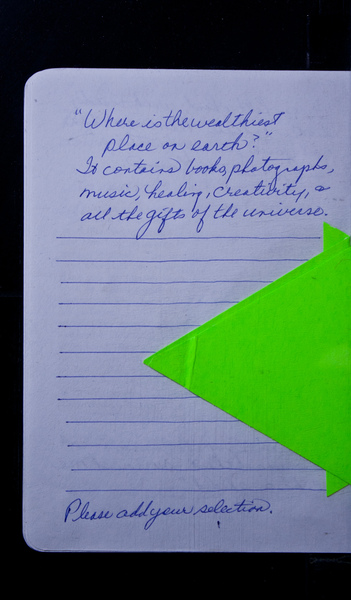 "Where is the wealthiest
place on earth?"
It contains books, photographs,
music, healing, creativity, &
all the gifts of the universe.
Please add your selection.